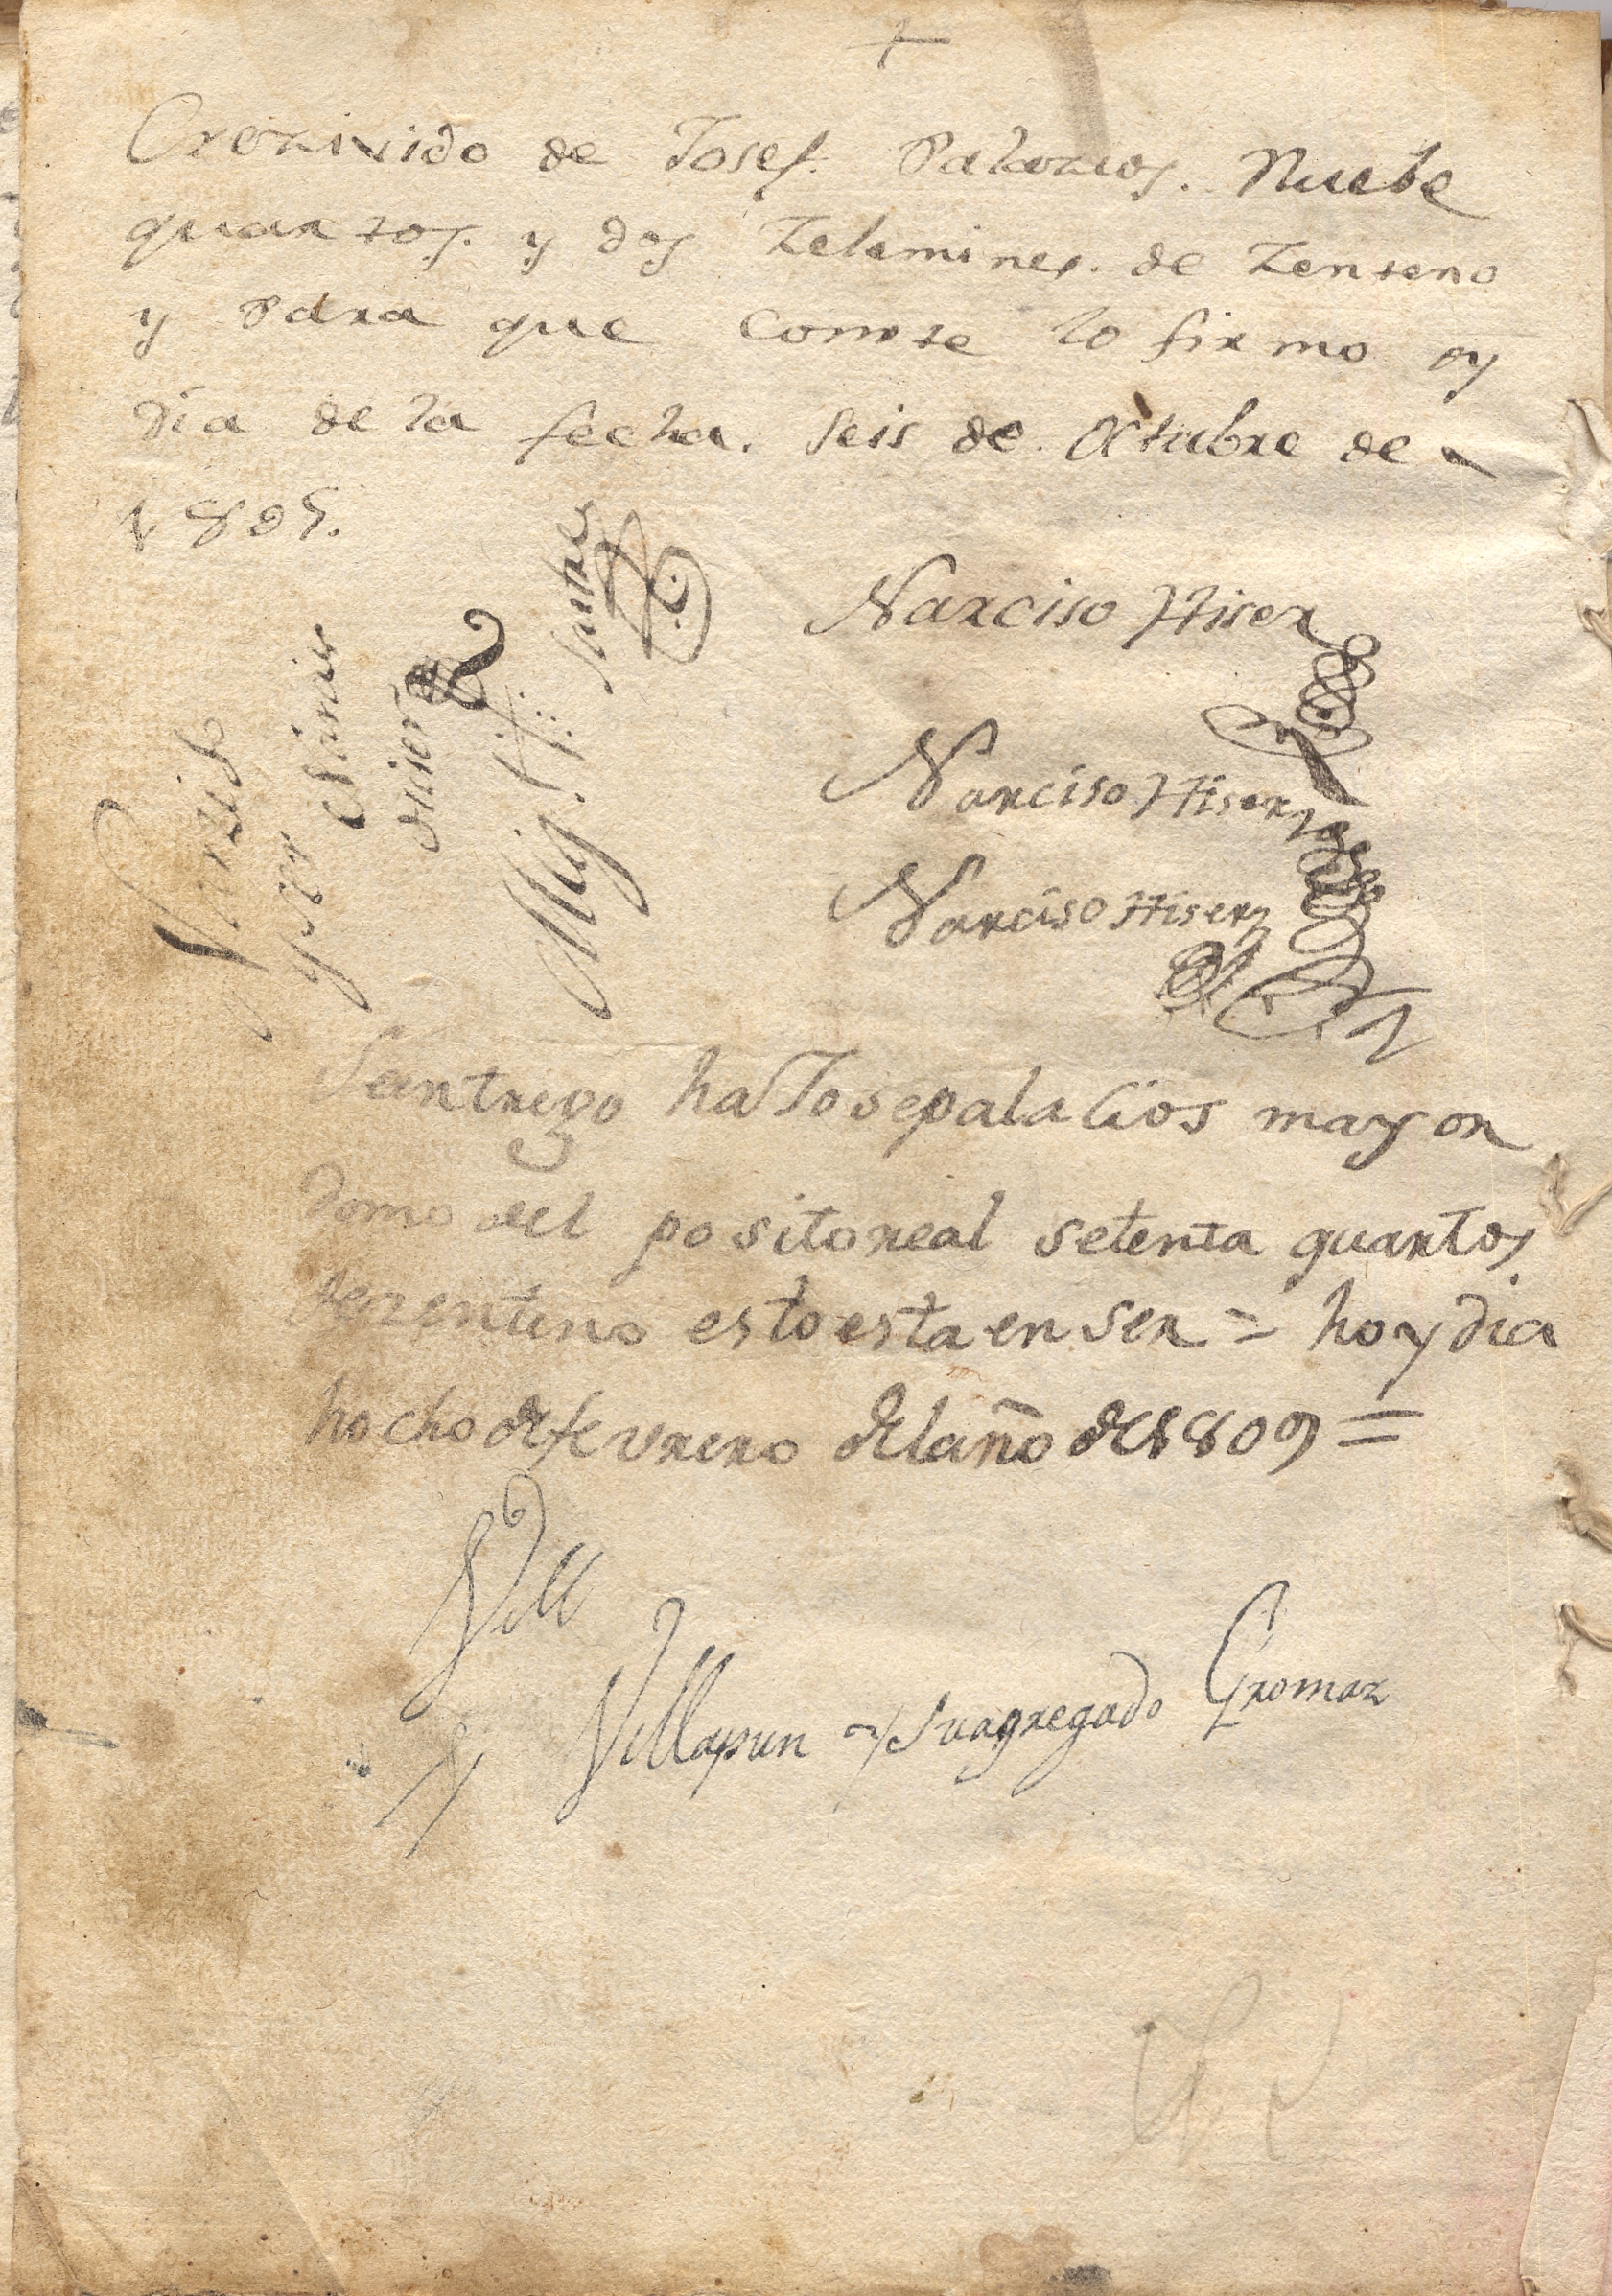 +
Crezivido de Josef. Palazios. Nuebe
quartos. y dos Zelemines. de Zenteno
y Para que Conste lo firmo oy
dia de la fecha. Seis de. Octubre de
Narciso Hiser
Narciso Hiser
Narciso Hiser
Santrego ha Jose palacios mayor
domo del posito real setenta quartos
dezenteno esto esta en ser = hoy dia
hocho de fevrero del año de 1809 =
Vill
Villapun y Su agregado Gromaz